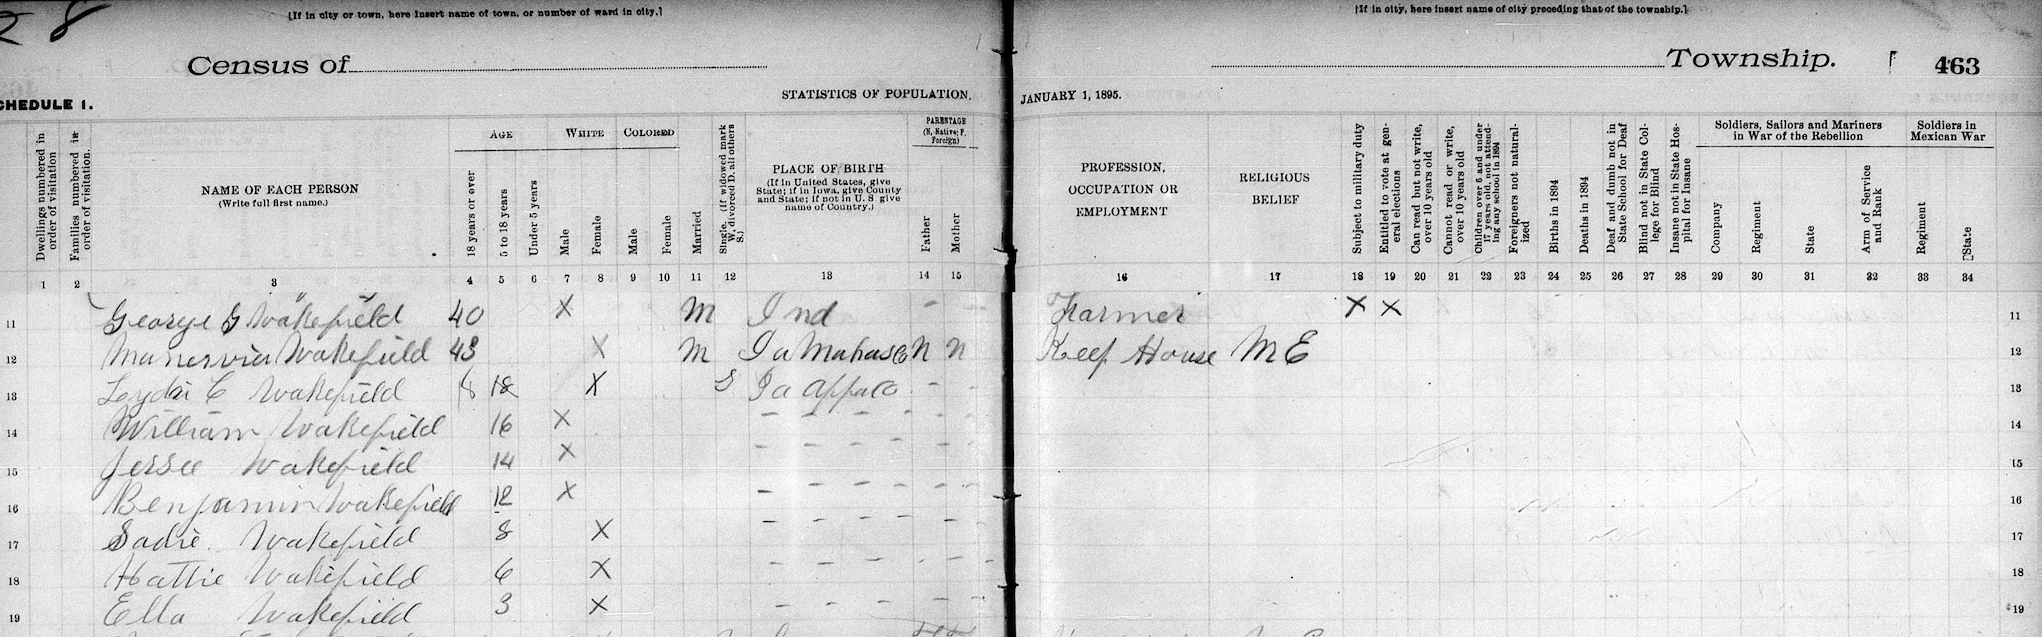 28
[If in city or town, here insert name of town, or number of ward in city.] [If in city, here insert name of city preceding that of the township.]
Census of Township. 463
CHEDULE 1. STATISTICS OF POPULATION, JANUARY 1, 1895.
Dwellings numbered in order of visitation
Families numbered in order of visitation.
NAME OF EACH PERSON
(Write full first name.)
AGE
18 years or over
5 to 18 years
Under 5 years
WHITE
Male
Female
COLORED
Male
Female
Married
Single, (If widowed mark W, divorced D. all others S.)
PLACE OF BIRTH
(If in United States, give
State; if in Iowa, give County
and State; if not in U. S give
name of Country.)
PARENTAGE
(N, Native; F. Foreign)
Father
Mother
PROFESSION,
OCCUPATION OR
EMPLOYMENT
RELIGIOUS
BELIEF
Subject to military duty
Entitled to vote at general elections
Can read but not write, over 10 years old
Cannot read or write, over 10 years old
Children over 6 and under 17 years old, not attending any school in 1894
Foreigners not naturalized
Births in 1894
Deaths in 1894
Deaf and dumb not in State School for Deaf
Blind not in State College for Blind
Insane not in State Hospital for Insane
Soldiers, Sailors and Mariners
in War of the Rebellion
Company
Regiment
State
Arm of Service and Rank
Soldiers in
Mexican War
Regiment
State
1 2 3 4 5 6 7 8 9 10 11 12 13 14 15 16 17 18 19 20 21 22 23 24 25 26 27 28 29 30 31 32 33 34
11 George G Wakefield 40 X M Ind - Farmer X X 11
12 Manervia Wakefield 43 X M Ia Mahas Co N N Keep House M E 12
13 Leydai C Wakefield 18 X S Ia Appa Co - - 13
14 William Wakefield 16 X - - - - - 14
15 Jessee Wakefield 14 X - - - - - 15
16 Benjamin Wakefield 12 X - - - - - 16
17 Sadie Wakefield 8 X - - - - - 17
18 Hattie Wakefield 6 X - - - - - 18
19 Ella Wakefield 3 X - - - - - 19